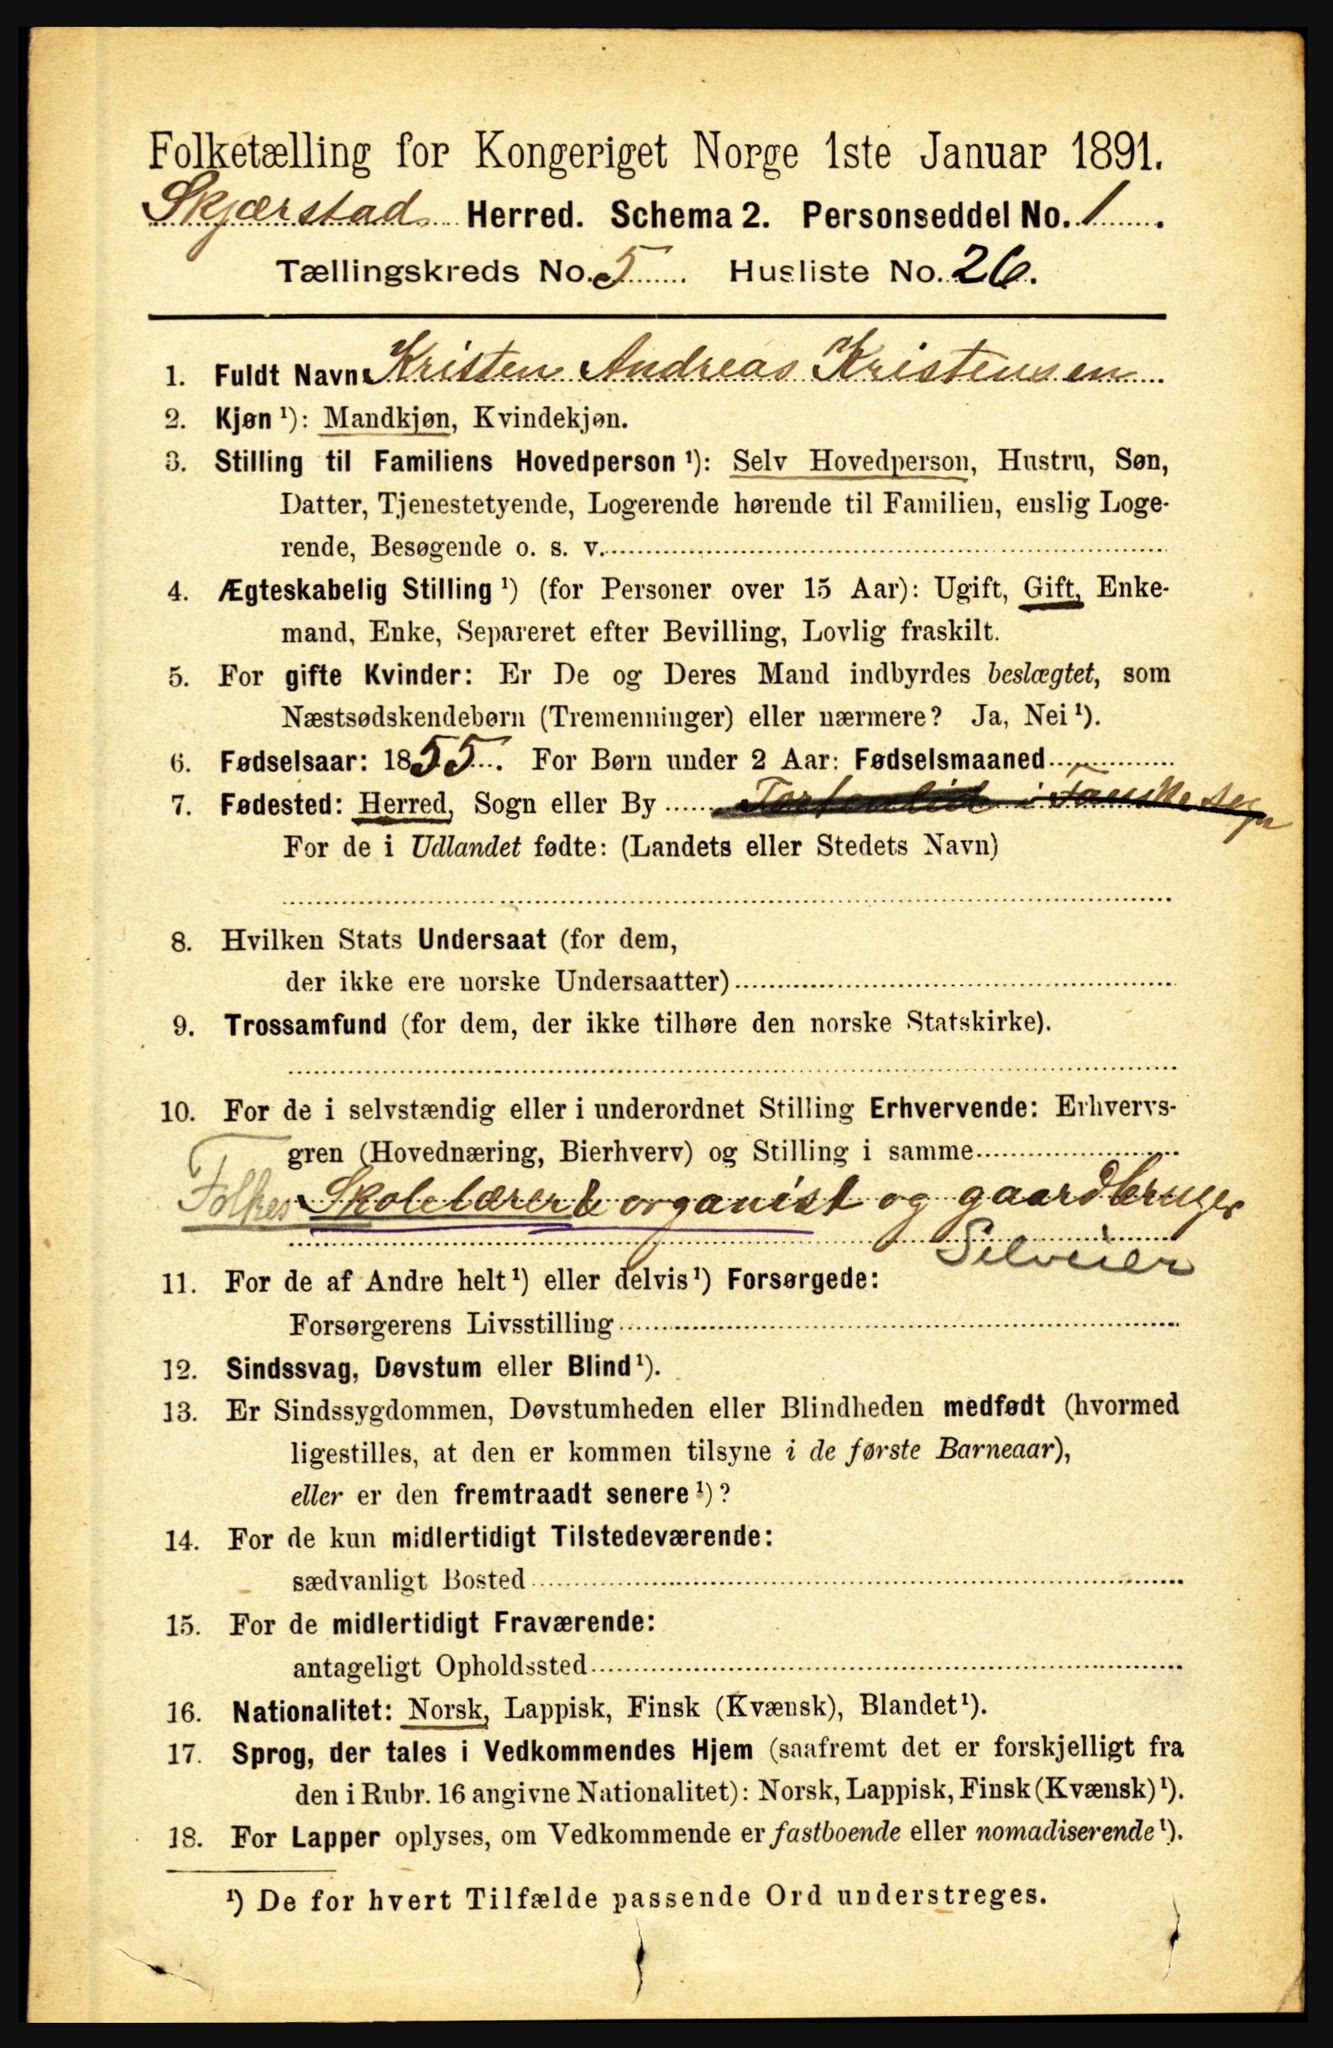 Folketælling for Kongeriget Norge 1ste Januar 1891.
Skjærstad Herred. Schema 2. Personseddel No. 1.
Tællingskreds No. 5. Husliste No. 26.
1. Fuldt Navn: Kristen Andreas Kristensen
2. Kjøn ¹): Mandkjøn, Kvindekjøn.
3. Stilling til Familiens Hovedperson ¹): Selv Hovedperson, Hustru, Søn,
Datter, Tjenestetyende, Logerende hørende til Familien, enslig Loge-
rende, Besøgende o. s. v.
4. Ægteskabelig Stilling ¹) (for Personer over 15 Aar): Ugift, Gift, Enke-
mand, Enke, Separeret efter Bevilling, Lovlig fraskilt.
5. For gifte Kvinder: Er De og Deres Mand indbyrdes beslægtet, som
Næstsødskendebørn (Tremenninger) eller nærmere? Ja, Nei ¹).
6. Fødselsaar: 1855. For Børn under 2 Aar: Fødselsmaaned
7. Fødested: Herred, Sogn eller By i Fauske
For de i Udlandet fødte: (Landets eller Stedets Navn)
8. Hvilken Stats Undersaat (for dem,
der ikke ere norske Undersaatter)
9. Trossamfund (for dem, der ikke tilhøre den norske Statskirke).
10. For de i selvstændig eller i underordnet Stilling Erhvervende: Erhvervs-
gren (Hovednæring, Bierhverv) og Stilling i samme
Folkes Skolelærer & organist og gaardbruger
Selveier
11. For de af Andre helt ¹) eller delvis ¹) Forsørgede:
Forsørgerens Livsstilling
12. Sindssvag, Døvstum eller Blind ¹).
13. Er Sindssygdommen, Døvstumheden eller Blindheden medfødt (hvormed
ligestilles, at den er kommen tilsyne i de første Barneaar),
eller er den fremtraadt senere ¹)?
14. For de kun midlertidigt Tilstedeværende:
sædvanligt Bosted
15. For de midlertidigt Fraværende:
antageligt Opholdssted
16. Nationalitet: Norsk, Lappisk, Finsk (Kvænsk), Blandet ¹).
17. Sprog, der tales i Vedkommendes Hjem (saafremt det er forskjelligt fra
den i Rubr. 16 angivne Nationalitet): Norsk, Lappisk, Finsk (Kvænsk) ¹).
18. For Lapper oplyses, om Vedkommende er fastboende eller nomadiserende ¹).
¹) De for hvert Tilfælde passende Ord understreges.